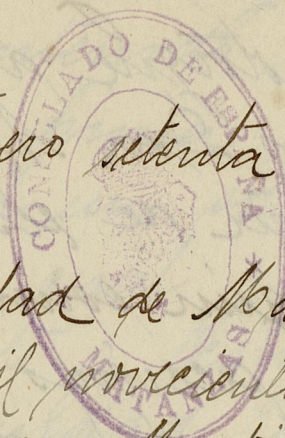 CONSULADO DE ESPAÑA * MATANZAS
ero setenta
dad de Ma
il novecient